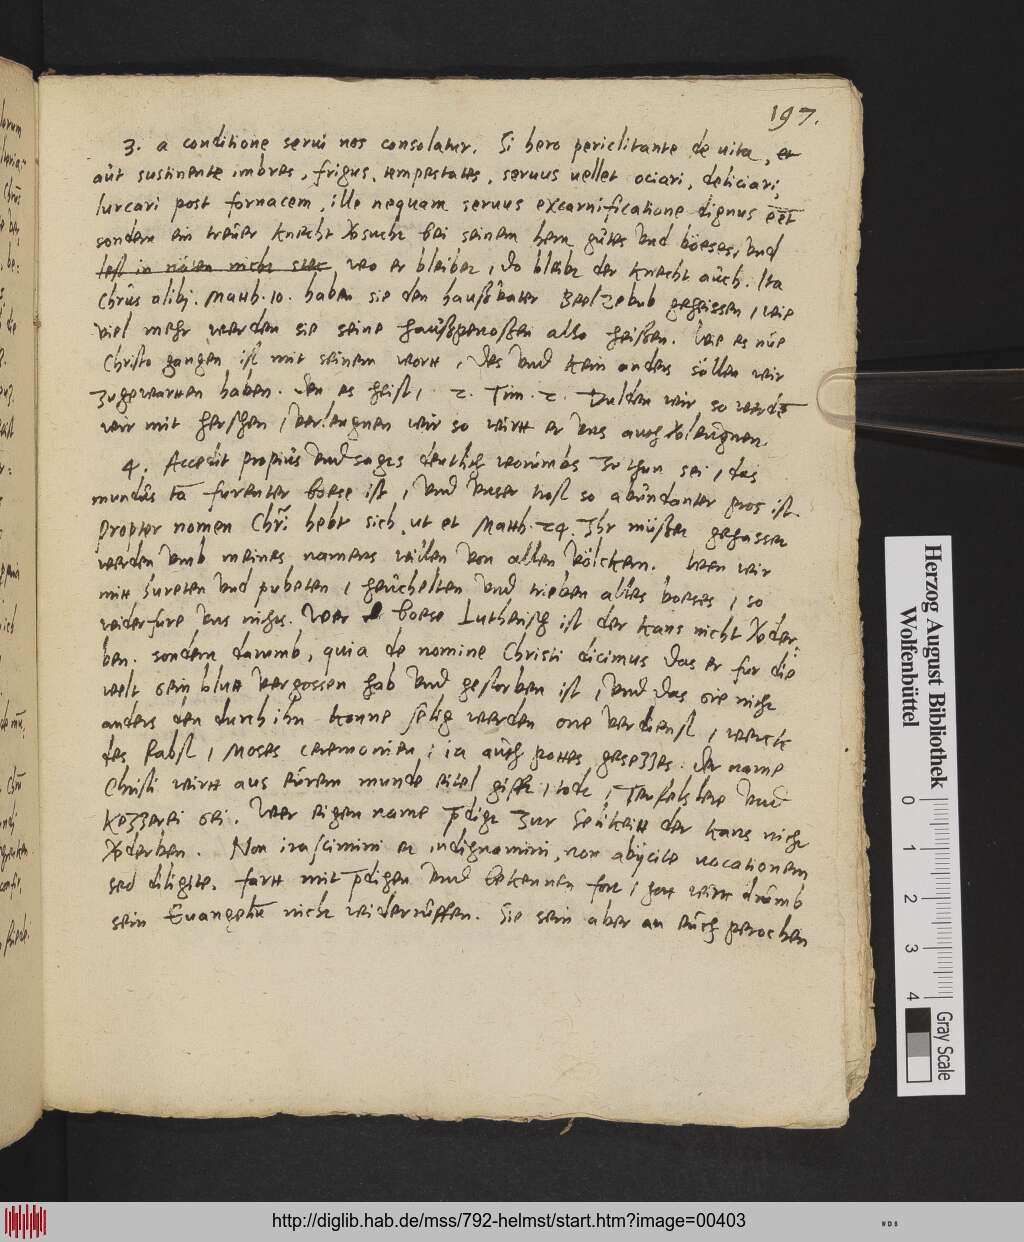 197.
3. a conditione serui nos consolatur. Si hero periclitante de uita, et
aut sustinente imbres, frigus, tempestates, seruus uellet ociari, deliciari,
lurcari post fornacem, ille nequam seruus excarnificatione dignus eet
sondern ein treuer knecht bei seinem hern gutes vnd böeses, vnd
lest in nöten nicht wo er bleibet, do bleibt der knecht auch. Ita
Chrus alibj. Matth. 10. haben sie den haußvater Beelzebub geheissen, wie
viel mehr werden sie seine haußgenoßen also heißen. Wie es nue
Christo gangen ist mit seinem wort, des vnd kein anders söllen wir
zugewarten haben. Den es heist, 2. Tim. 2. Dulden wir so werdē
wir mit herschen, verleugnen wir so wirtt er vns auch vleugnen.
4. Accedit propius vnd sagts deutlich worumbs zu thun sei, das
mundus tā furenter boese ist, vnd vnser trost so abundanter gros ist
propter nomen Chri hebt sich, ut et Matth. 24. Ihr müßet gehasset
werden vmb meines namens willen von allen völckern. Wen wir
mitt hureten vnd pubeten, heuchelten vnd trieben alles boeses, so
widerfure vns nichts. Wer boese Lutherisch ist der kans nicht vder-
ben. sondern darumb, quia de nomine Christi dicimus das er fur die
welt sein blutt vergossen hab vnd gestorben ist, vnd das sie nicht
anders den durch ihn konne selig werden one verdienst, werck
des Babst, Moses ceremonien, ia auch gottes gesezzes. Der name
Christi wirtt aus eurem munde eitel gifft, todt, Teufelslere vnd
kezzerei sei. Wer eigen name pdigt zur Selikeitt der kans nicht
vderben. Non irascimini et indignamini, non abijcite uocationem
sed diligite. fartt mit pdigen vnd bekennen fort, gott wirtt drumb
sein Euangeliū nicht widerruffen. Sie sein aber an euch gerochen
Herzog August Bibliothek
Wolfenbüttel
0 1 2 3 4
Gray Scale
http://diglib.hab.de/mss/792-helmst/start.htm?image=00403